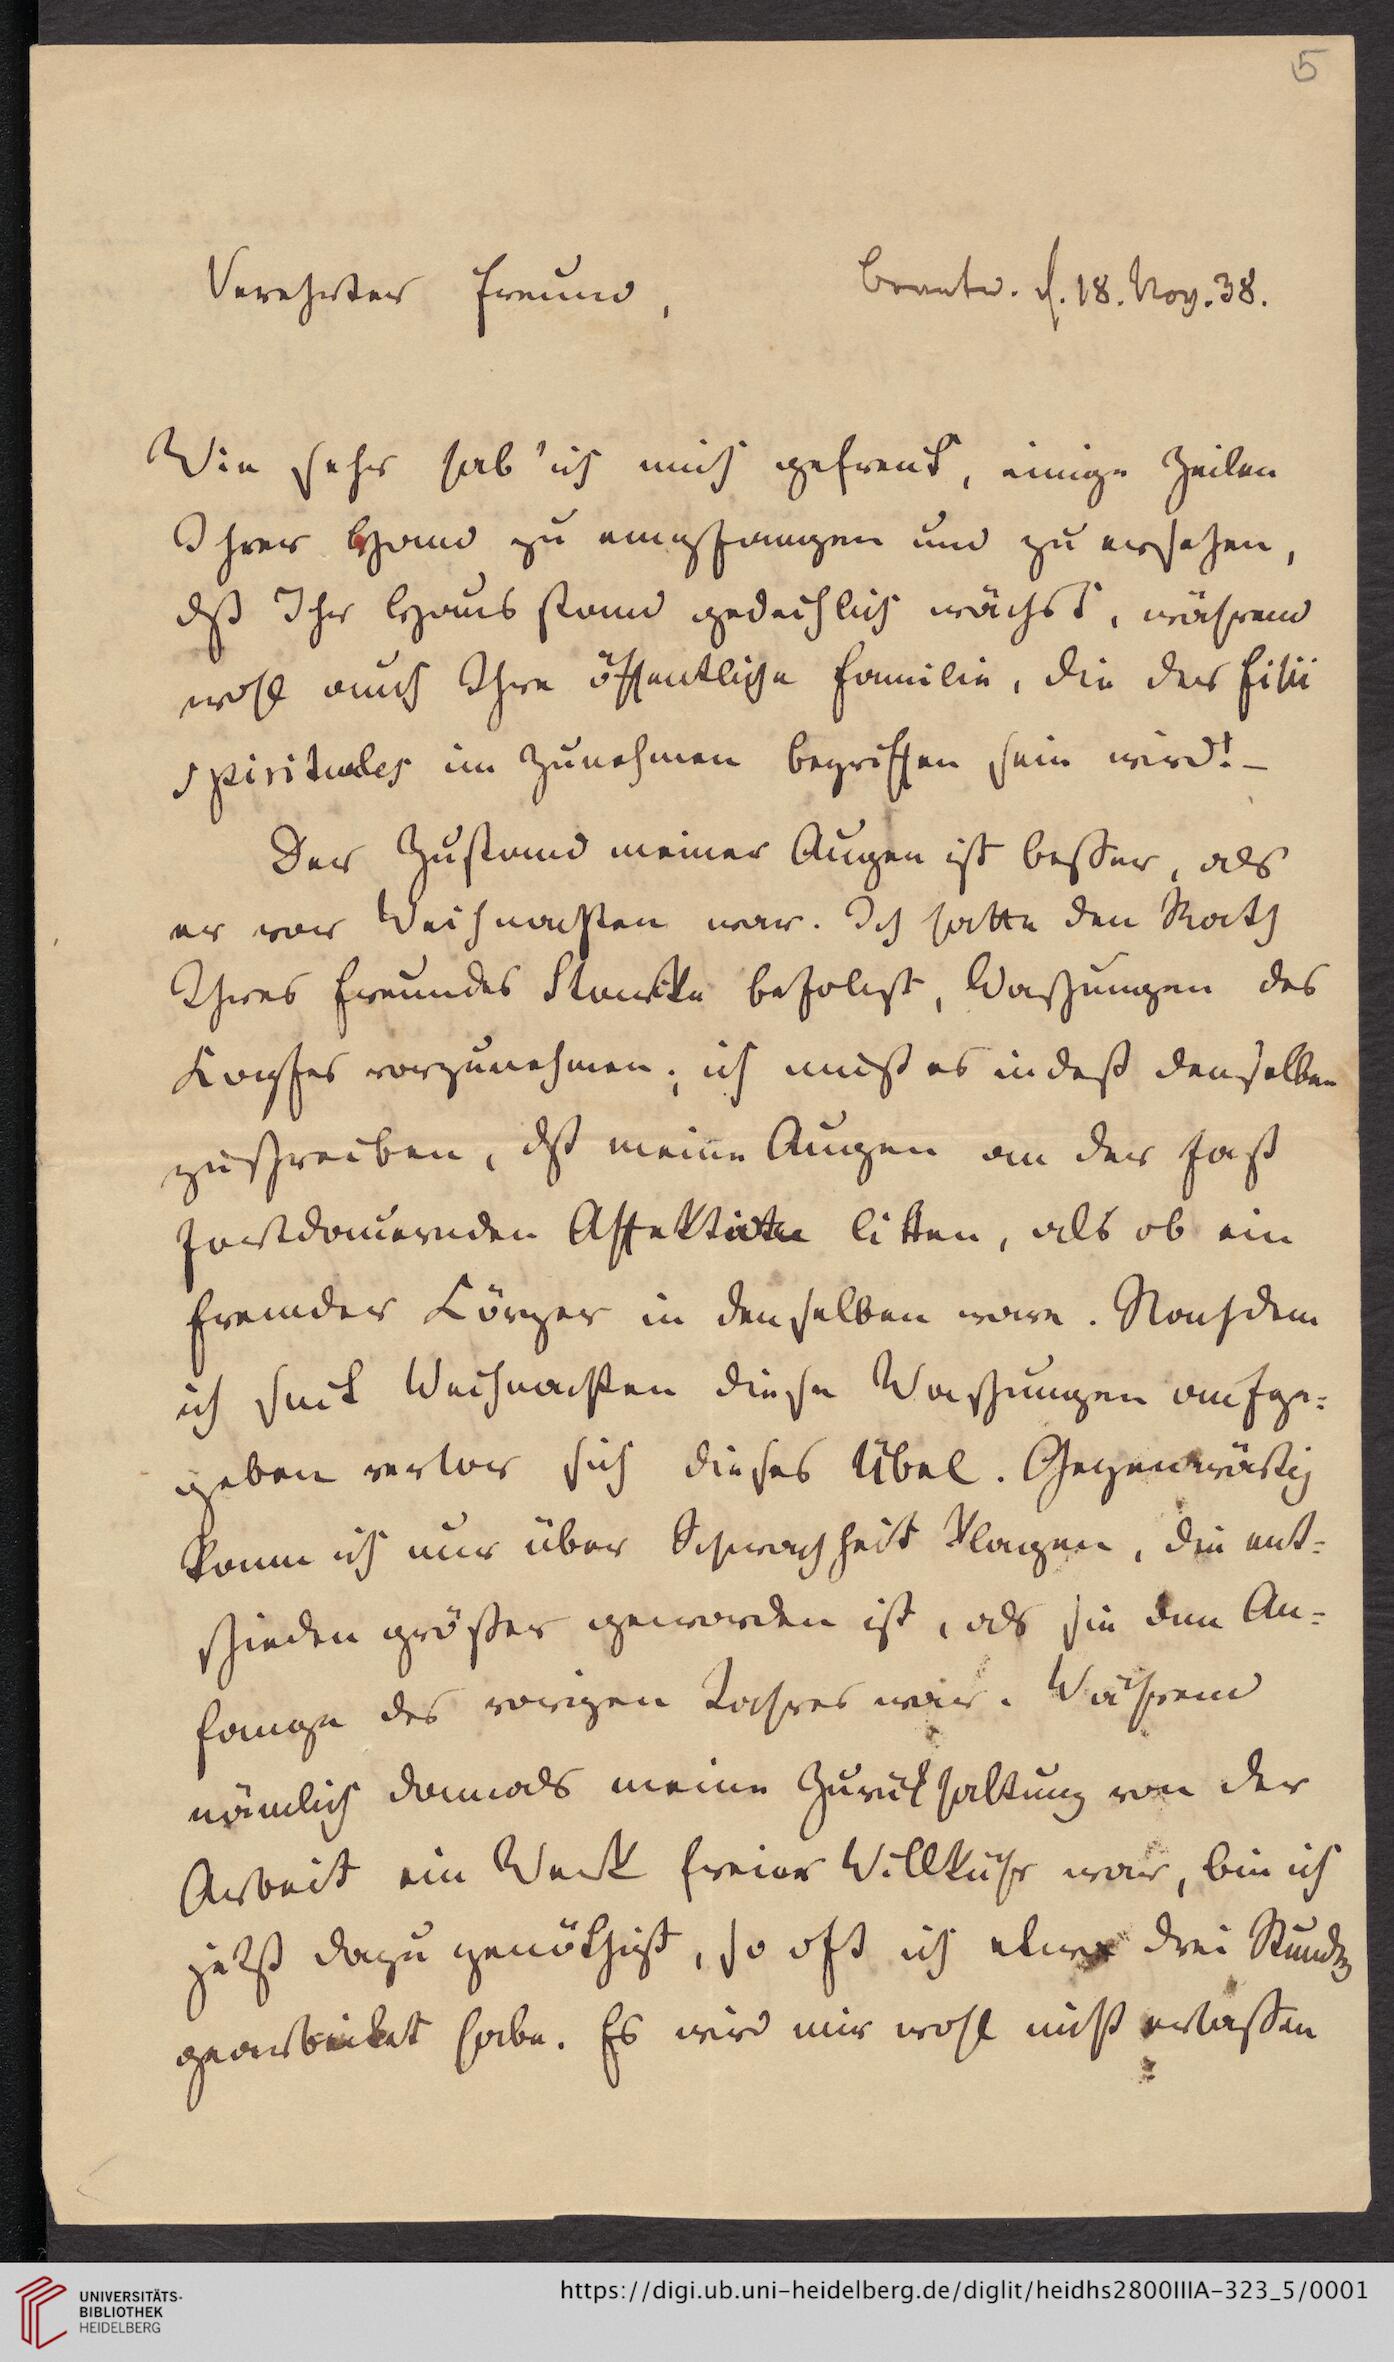 5
Verehrter Freund,
beantw. d. 18. Nov. 38.
Wie sehr hab' ich mich gefreut, einige Zeilen
Ihrer Hand zu empfangen und zu ersehen,
dß Ihr Hausstand gedeihlich wächst, während
wohl auch Ihre öffentliche Familie, die der filii
spirituales im Zunehmen begriffen sein wird! –
Der Zustand meiner Augen ist besser, als
er vor Weihnachten war. Ich hatte den Rath
Ihres Freundes befolgt, Waschungen des
Kopfes vorzunehmen; ich muß es indeß denselben
zuschreiben, dß meine Augen an der fast
fortdauernden Affektion litten, als ob ein
fremder Körper in denselben wäre. Nachdem
ich seit Weihnachten diese Waschungen aufge=
geben verlor sich dieses Übel. Gegenwärtig
kann ich nur über Schwachheit klagen, die ent=
schieden größer geworden ist, als sie am An=
fange des vorigen Jahres war. Während
nämlich damals meine Zurückhaltung von der
Arbeit ein Werk freier Willkühr war, bin ich
jetzt dazu genöthigt, so oft ich etwa drei Stunden
gearbeitet habe. Es wird mir wohl nicht erlassen
UNIVERSITÄTS-
BIBLIOTHEK
HEIDELBERG
https://digi.ub.uni-heidelberg.de/diglit/heidhs2800IIIA-323_5/0001